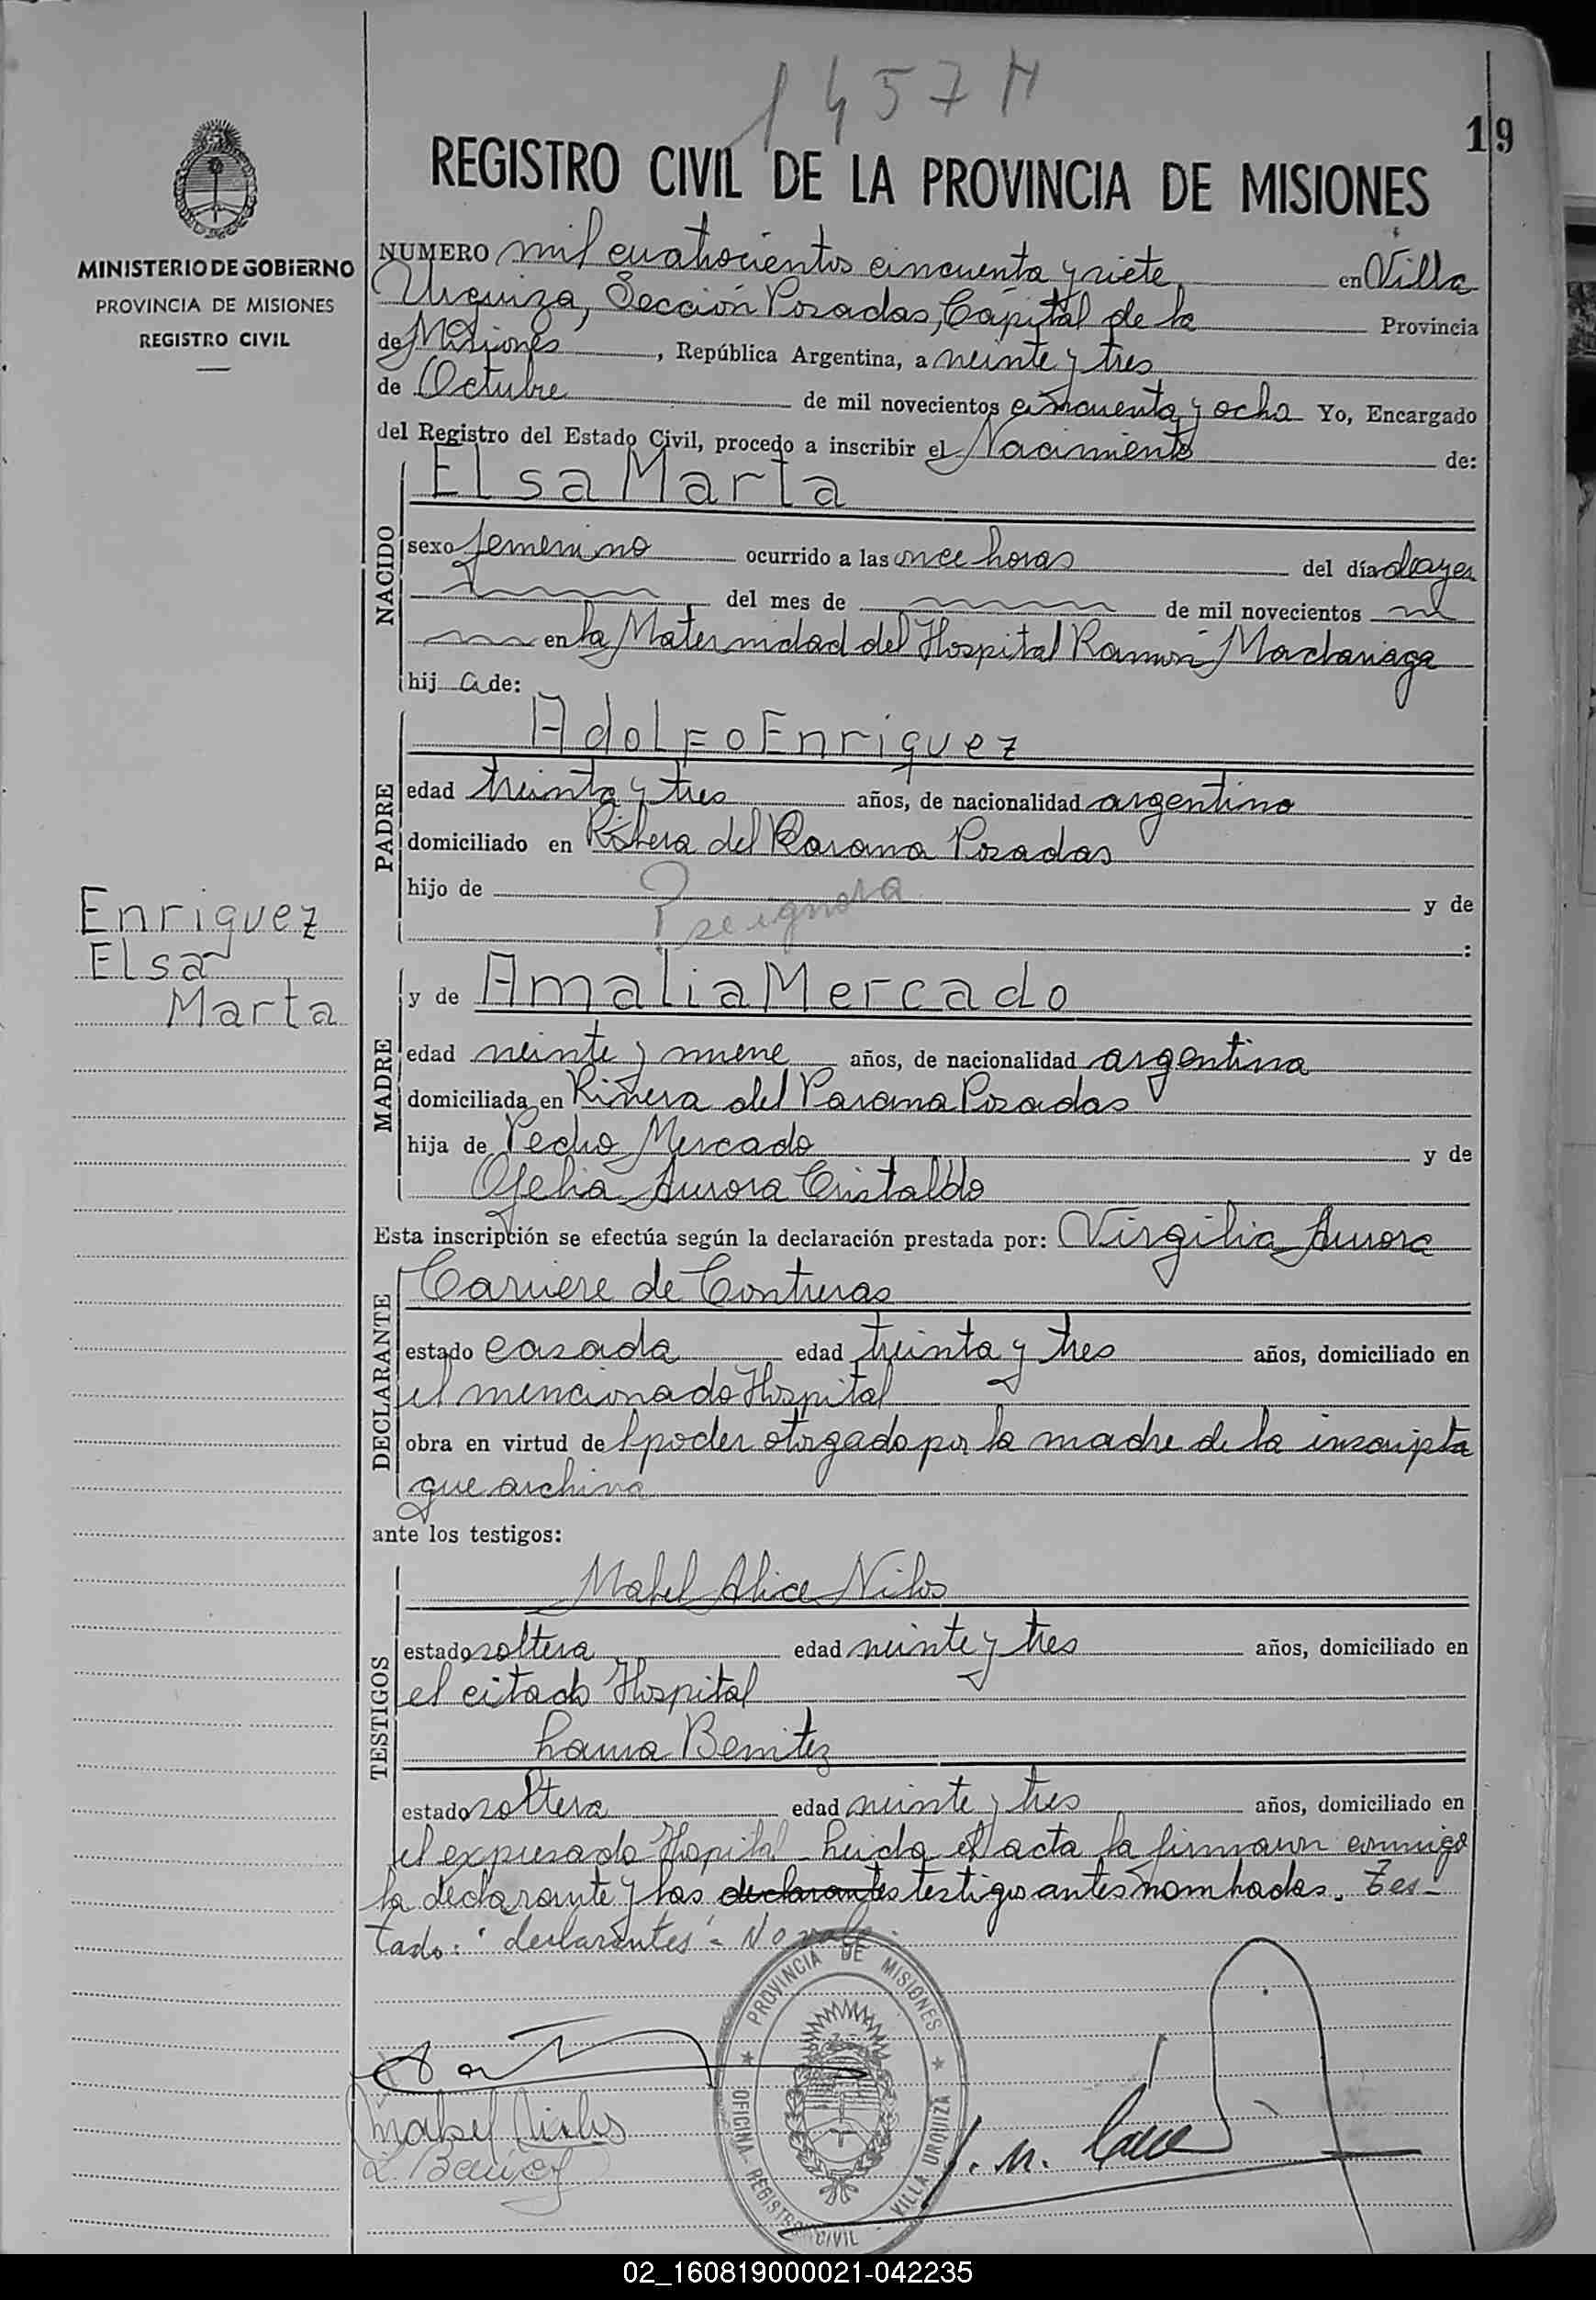 1457 M
19
REGISTRO CIVIL DE LA PROVINCIA DE MISIONES
MINISTERIO DE GOBIERNO
PROVINCIA DE MISIONES
REGISTRO CIVIL
NUMERO mil cuatrocientos cincuenta y siete en Villa
Urquiza, Sección Posadas, Capital de la Provincia
de Misiones, República Argentina, a veinte y tres
de Octubre de mil novecientos cincuenta y ocho Yo, Encargado
del Registro del Estado Civil, procedo a inscribir el Nacimiento de:
Elsa Marta
NACIDO
sexo femenino ocurrido a las once horas del día de ayer
del mes de de mil novecientos
en la Maternidad del Hospital Ramón Madariaga
hij a de:
Adolfo Enriquez
PADRE
edad treinta y tres años, de nacionalidad argentino
domiciliado en Ribera del Parana Posadas
hijo de se ignora y de
:
Enriquez
Elsa
Marta
y de Amalia Mercado
MADRE
edad veinte y nueve años, de nacionalidad argentina
domiciliada en Rivera del Parana Posadas
hija de Pedro Mercado y de
Ofelia Aurora Cristaldo
Esta inscripción se efectúa según la declaración prestada por: Virgilia Aurora
de Contreras
DECLARANTE
estado casada edad treinta y tres años, domiciliado en
el mencionado Hospital
obra en virtud de l poder otorgado por la madre de la inscripta
que archivo
ante los testigos:
Mabel Alice
TESTIGOS
estado soltera edad veinte y tres años, domiciliado en
el citado Hospital
Laura Benitez
estado soltera edad veinte y tres años, domiciliado en
el expresado Hospital. Leida el acta la firmaron conmigo
la declarante y las declarantes testigos antes nombradas. Tes-
tado: "declarantes" - No vale.
PROVINCIA DE MISIONES
OFICINA REGISTRO CIVIL - VILLA URQUIZA
Mabel
02_160819000021-042235